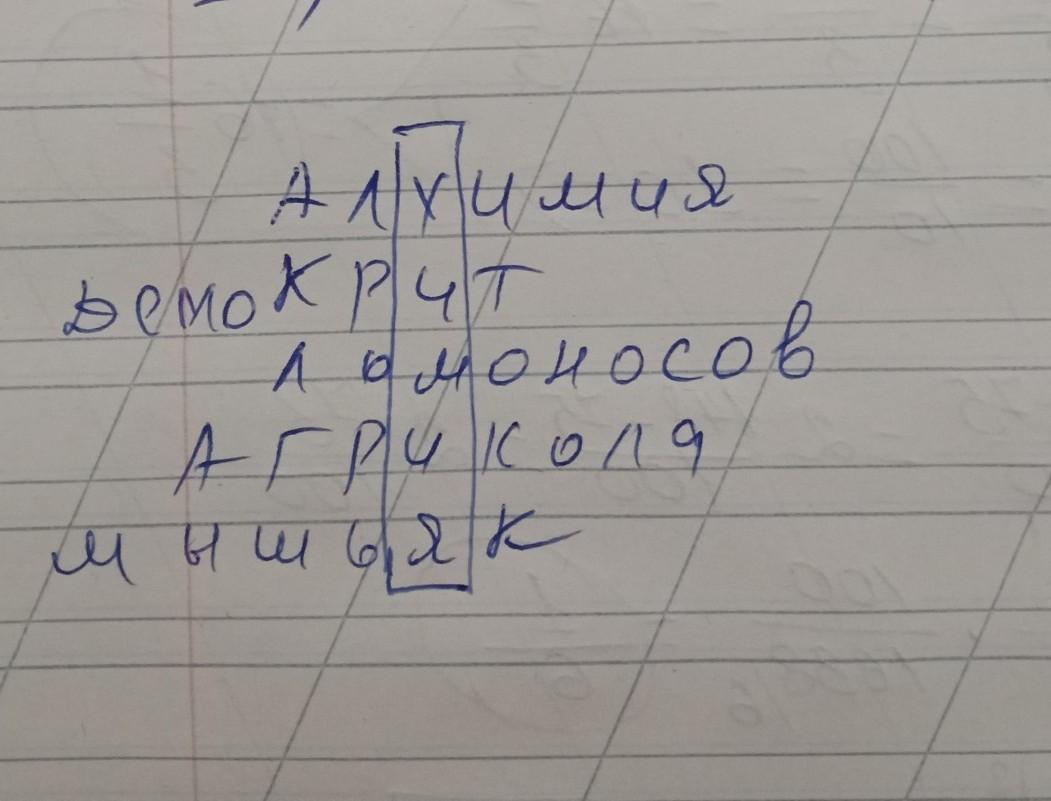 АЛХИМИЯ
ДемоКРИТ
ЛОМОНОСОВ
АГРИКОЛА
МЫШЬЯК